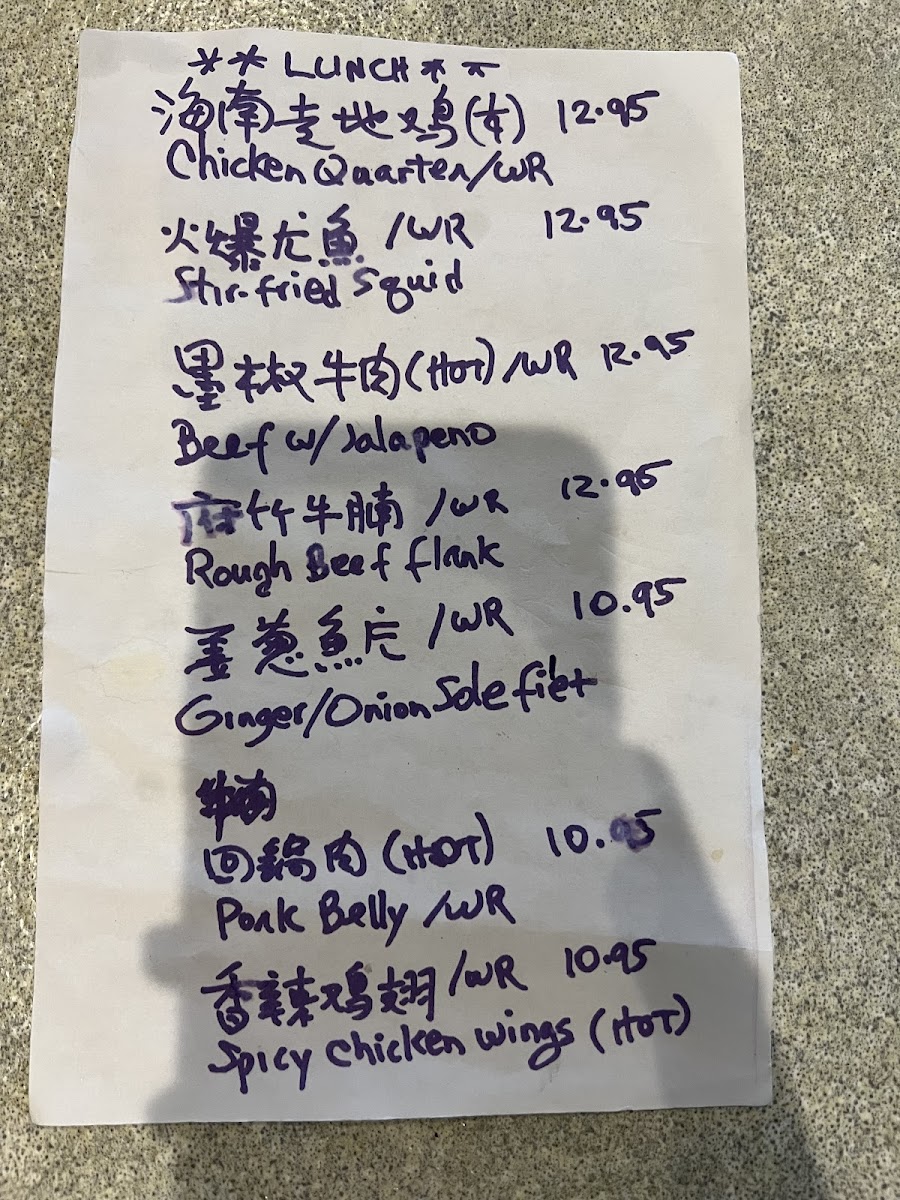 ** LUNCH **
海南走地鸡(女) 12.95
Chicken Quarter/WR
火爆尤魚 /WR 12.95
Stir-fried Squid
墨椒牛肉(HOT)/WR 12.95
Beef w/Jalapeno
府竹牛腩 /WR 12.95
Rough Beef flank
姜葱魚片 /WR 10.95
Ginger/Onion Sole filet
回鍋肉 (HOT) 10.95
Pork Belly /WR
香辣鸡翅/WR 10.95
Spicy Chicken wings (HOT)